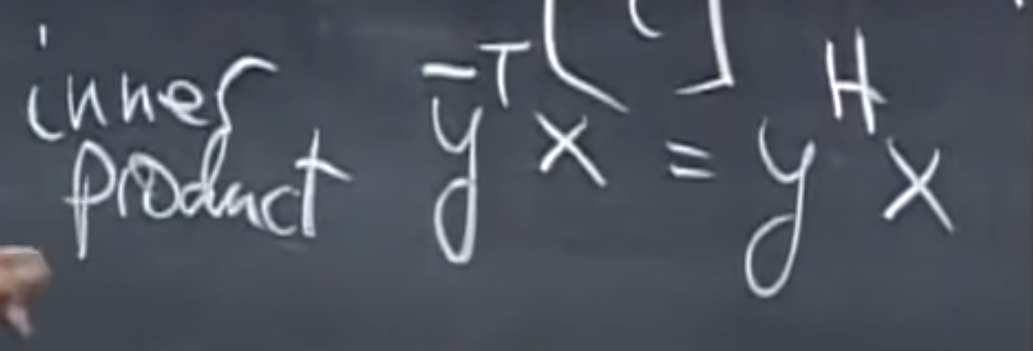 inner
product ȳᵀx = yᴴx